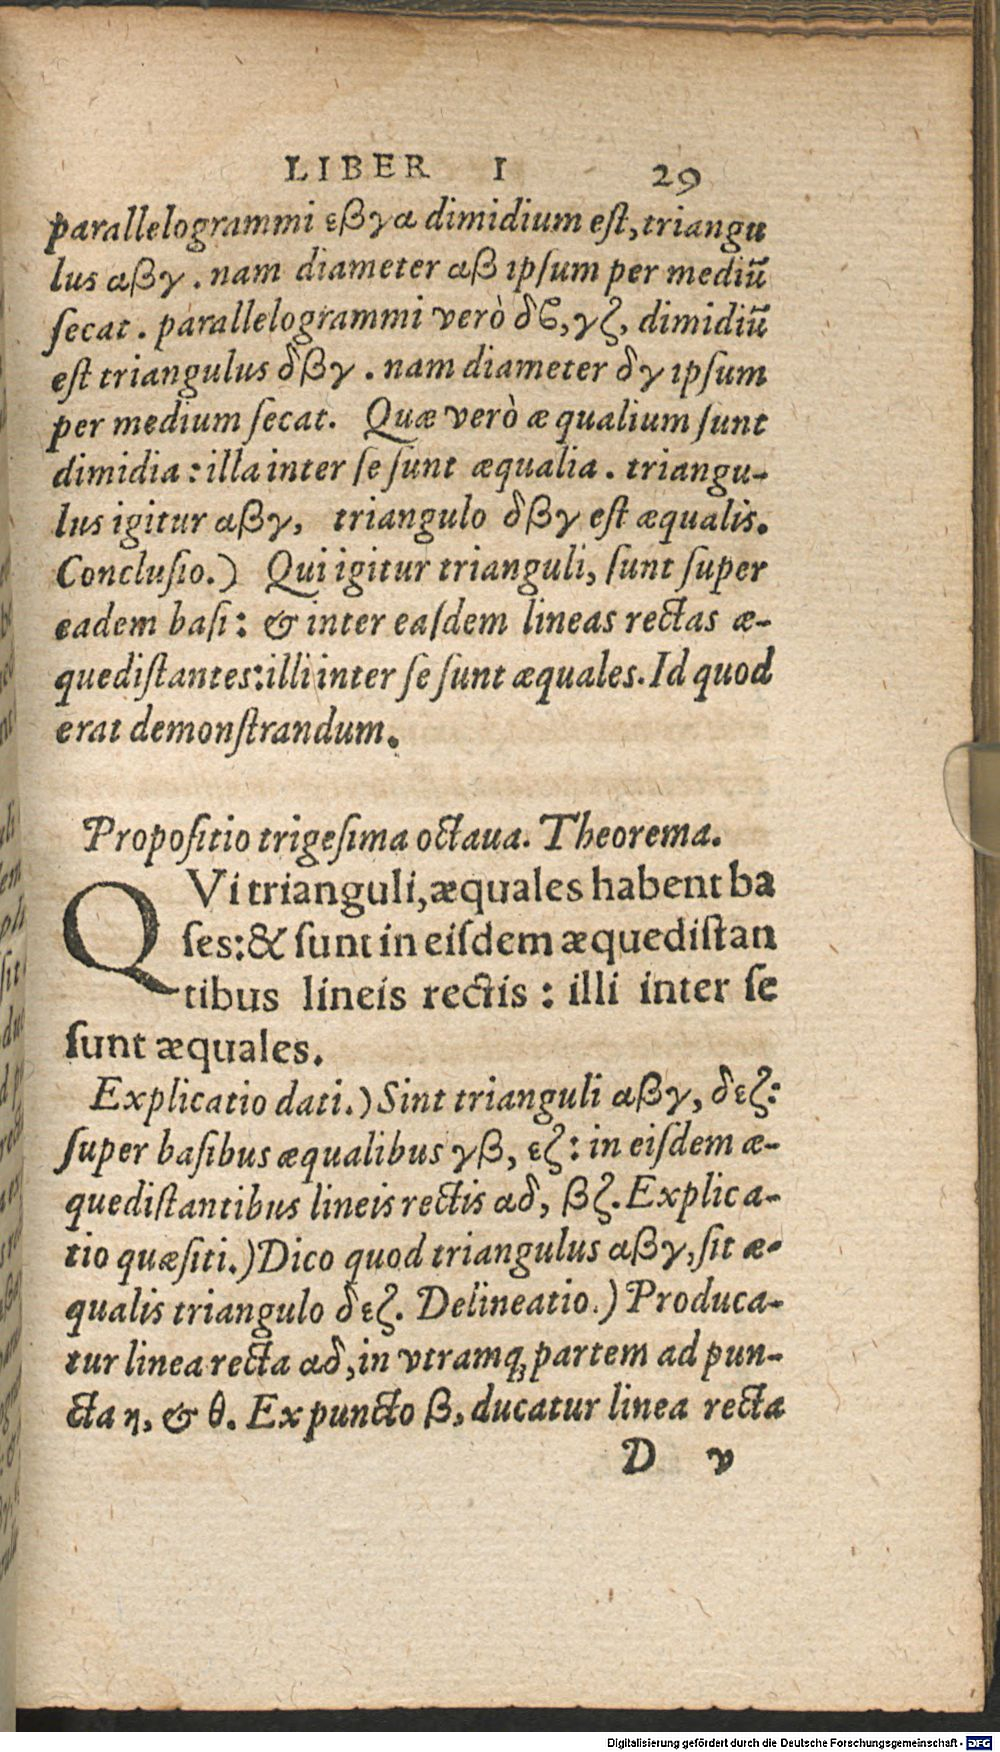 LIBER I 29
parallelogrammi εβγα dimidium eſt, triangu
lus αβγ. nam diameter αβ ipſum per mediũ
ſecat. parallelogrammi verò δϐ, γζ, dimidiũ
eſt triangulus δβγ. nam diameter δγ ipſum
per medium ſecat. Quæ verò æqualium ſunt
dimidia: illa inter ſe ſunt æqualia. triangu-
lus igitur αβγ, triangulo δβγ eſt æqualis.
Concluſio.) Qui igitur trianguli, ſunt ſuper
eadem baſi: & inter eaſdem lineas rectas æ-
quediſtantes: illi inter ſe ſunt æquales. Id quod
erat demonſtrandum.
Propoſitio trigeſima octaua. Theorema.
QVi trianguli, æquales habent ba
ſes: & ſunt in eiſdem æquediſtan
tibus lineis rectis: illi inter ſe
ſunt æquales.
Explicatio dati.) Sint trianguli αβγ, δεζ:
ſuper baſibus æqualibus γβ, εζ: in eiſdem æ-
quediſtantibus lineis rectis αδ, βζ. Explica-
tio quæſiti.) Dico quod triangulus αβγ, ſit æ-
qualis triangulo δεζ. Delineatio.) Produca-
tur linea recta αδ, in vtramq; partem ad pun-
cta η, & θ. Ex puncto β, ducatur linea recta
D v
Digitalisierung gefördert durch die Deutsche Forschungsgemeinschaft - DFG